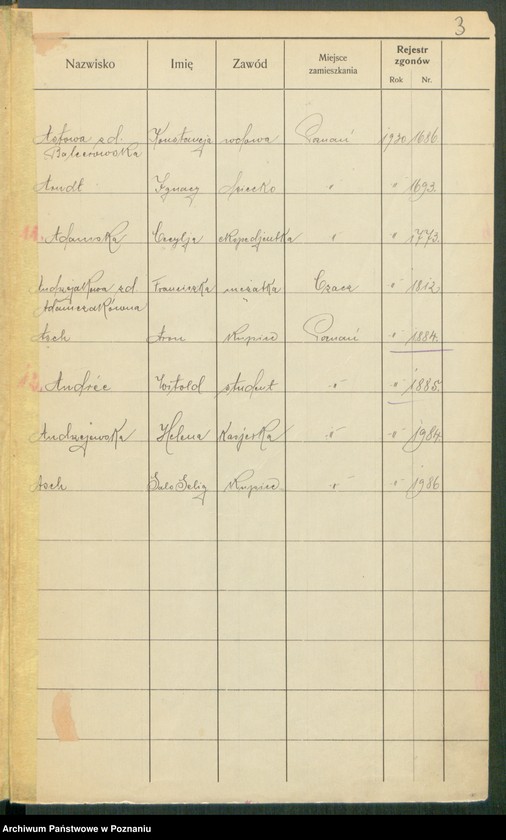 3
Nazwisko Imię Zawód Miejsce zamieszkania Rejestr zgonów
Rok Nr.
Astowa zd. Konstancja wdowa Poznań 1930 1686
Balcerowska
Arndt Ignacy dziecko " " 1693.
Adamska Cecylja ekspedjentka " " 1773.
Andrzejakowa zd. Franciszka mężatka Czacz " 1812
Adamczakówna
Asch Aron Kupiec Poznań " 1884.
Andrée Witold student " " 1885.
Andrzejewska Helena Kasjerka " " 1984.
Asch Salo Selig Kupiec " " 1986
Archiwum Państwowe w Poznaniu